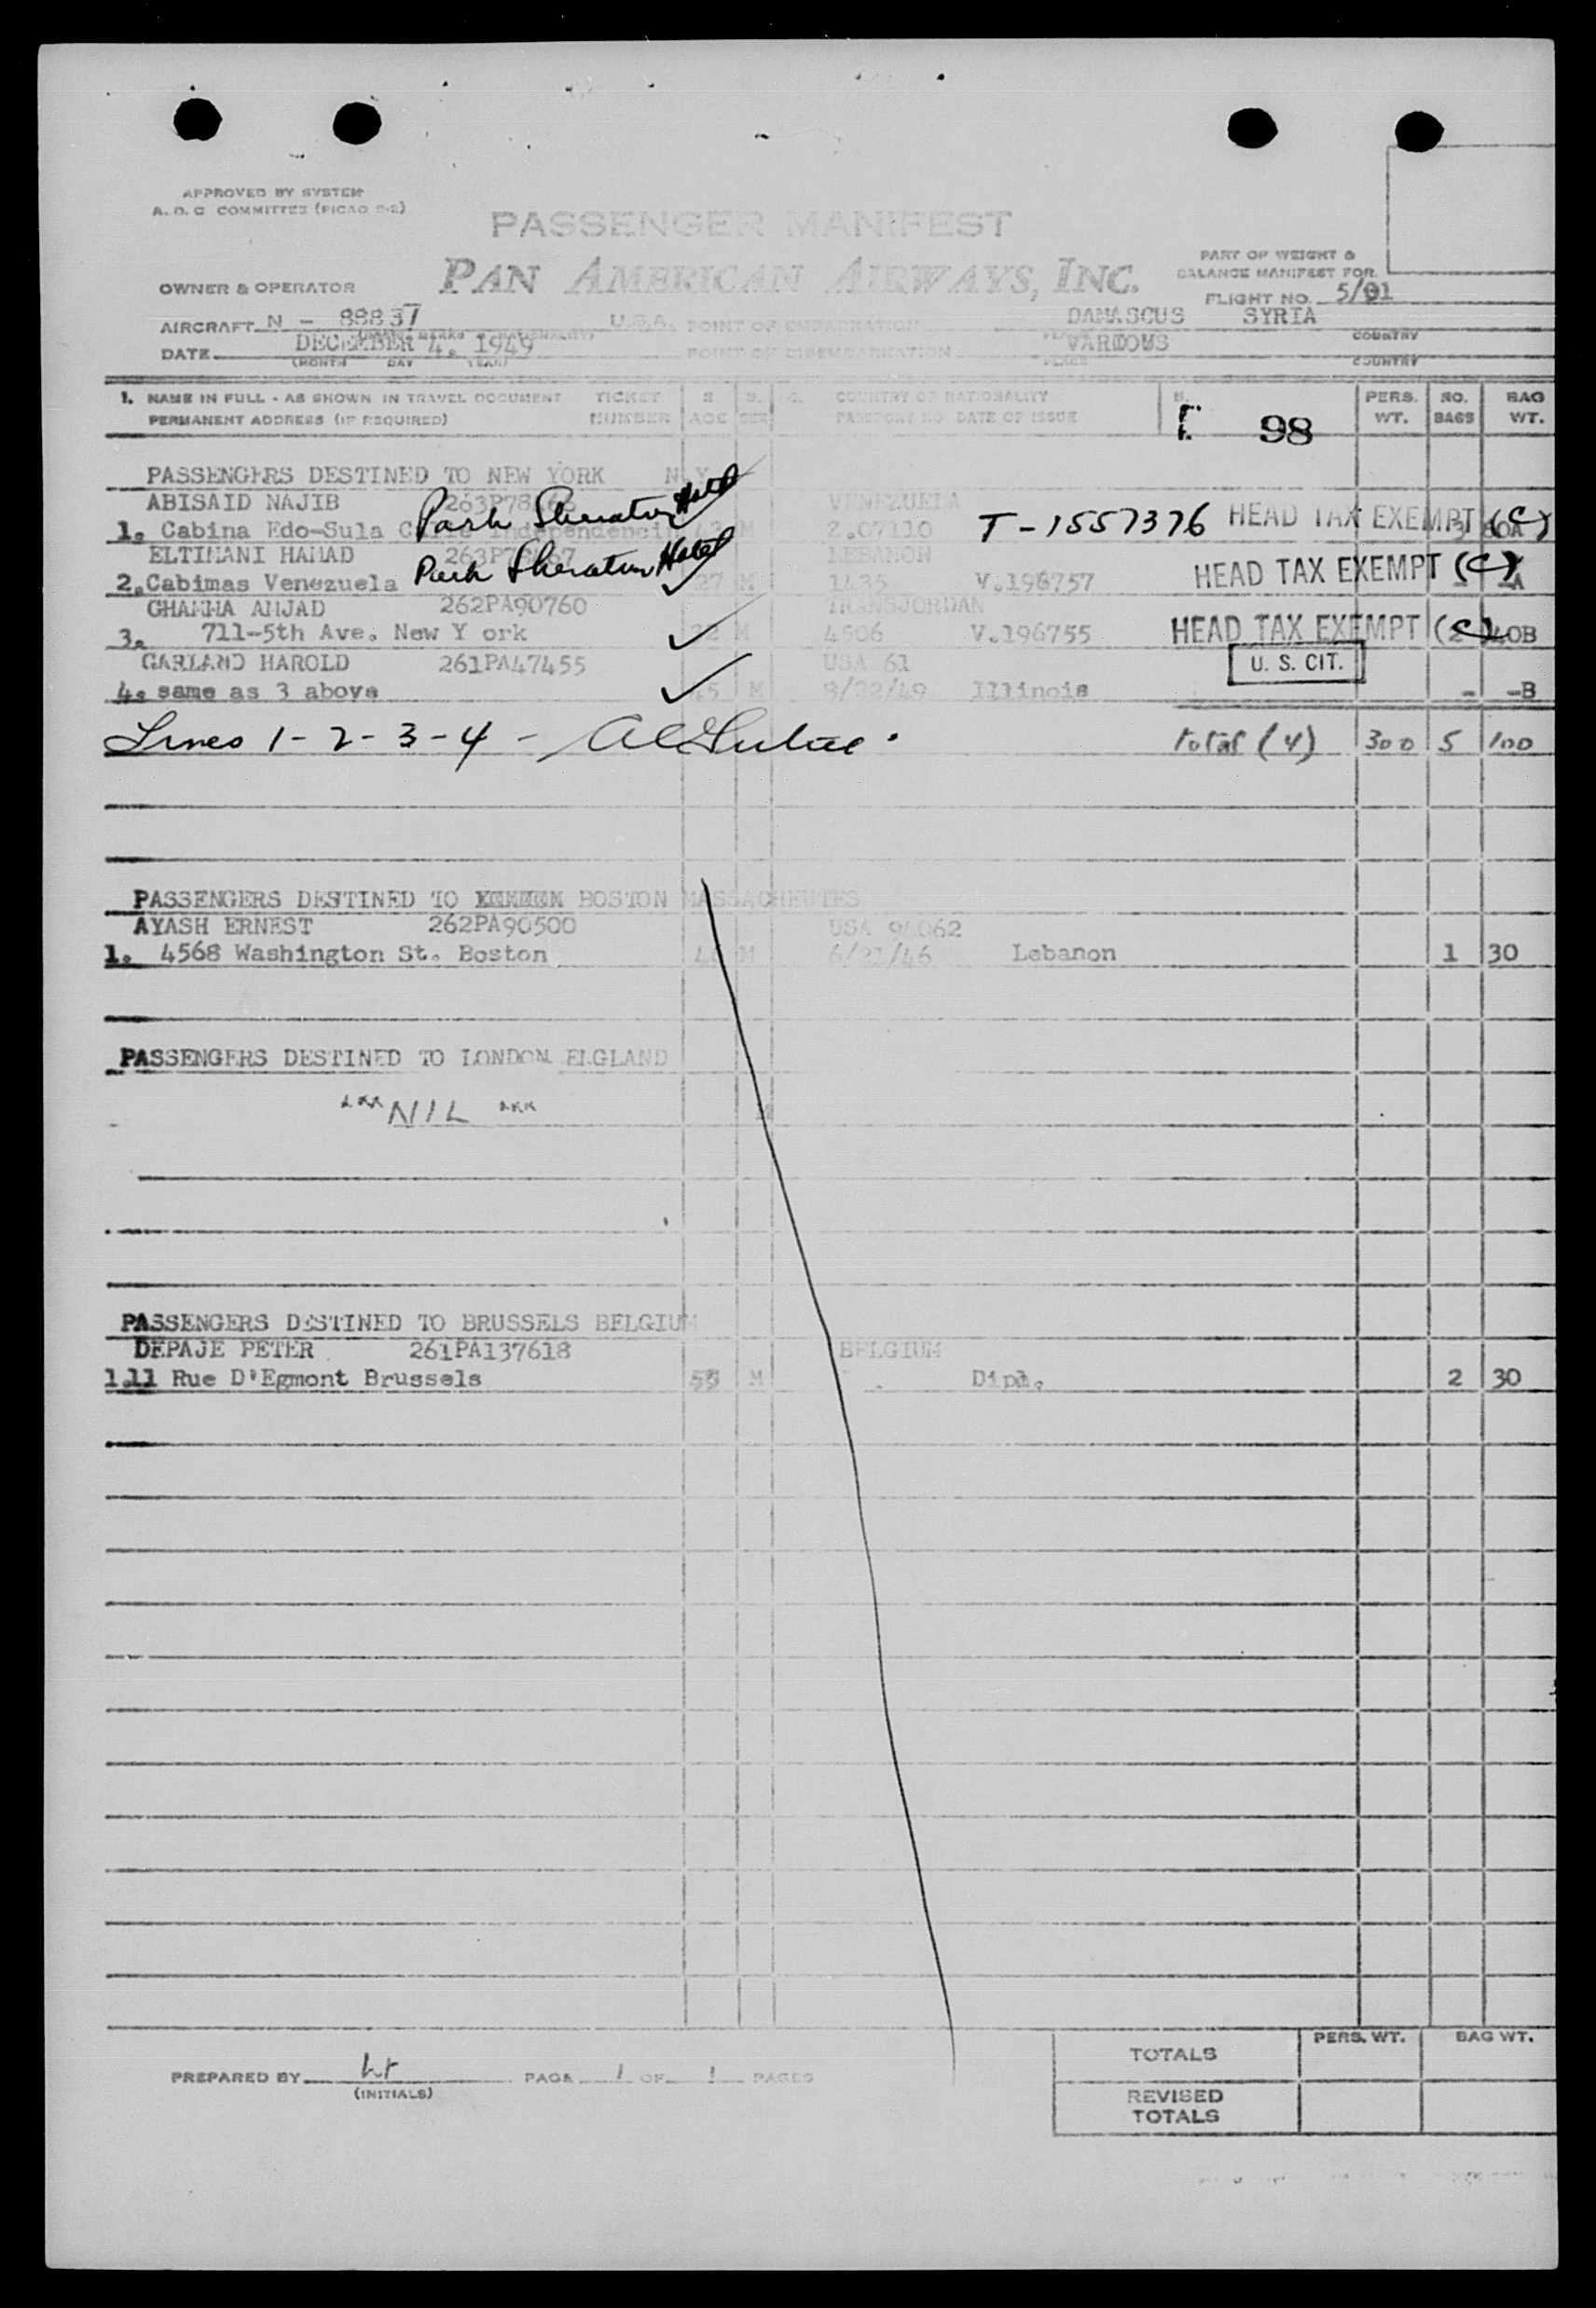 APPROVED BY SYSTEM
A. O. C COMMITTEE (PICAO 2-2)
PASSENGER MANIFEST
PAN AMERICAN AIRWAYS, INC.
PART OF WEIGHT &
BALANCE MANIFEST FOR
FLIGHT NO. 5/01
OWNER & OPERATOR
AIRCRAFT N - 88837 U.S.A. POINT OF EMBARKATION DAMASCUS SYRIA
COUNTRY
DATE DECEMBER 4. 1949 POINT OF DISEMBARKATION
(MONTH DAY YEAR) PLACE COUNTRY
1. NAME IN FULL - AS SHOWN IN TRAVEL DOCUMENT TICKET 2. 3. 4. COUNTRY OF NATIONALITY 5. PERS. NO. BAG
PERMANENT ADDRESS (IF REQUIRED) NUMBER AGE SEX PASSPORT NO DATE OF ISSUE 98 WT. BAGS WT.
PASSENGERS DESTINED TO NEW YORK N Y
ABISAID NAJIB Park Sheraton Hotel VENEZUELA
1. Cabina Edo-Sula Independencia M 2.07110 T-1557376 HEAD TAX EXEMPT (C)
ELTIMANI HAMAD Park Sheraton Hotel LEBANON
2. Cabimas Venezuela 27 M 1435 V.196757 HEAD TAX EXEMPT (C) -A
GHAMMA AMJAD 262PA90760 TRANSJORDAN
3. 711-5th Ave. New Y ork M 4506 V.196755 HEAD TAX EXEMPT (C) 40B
GARLAND HAROLD 261PA47455 USA 61 U. S. CIT.
4. same as 3 above M 8/22/49 Illinois - -B
Lines 1-2-3-4 - total (4) 300 5 100
PASSENGERS DESTINED TO BOSTON MASSACHEUTES
AYASH ERNEST 262PA90500 USA
1. 4568 Washington St. Boston M 6/21/46 Lebanon 1 30
PASSENGERS DESTINED TO LONDON ELGLAND
*** NIL ***
PASSENGERS DESTINED TO BRUSSELS BELGIUM
DEPAJE PETER 261PA137618 BELGIUM
1.11 Rue D'Egmont Brussels M Dipl. 2 30
PERS. WT. BAG WT.
TOTALS
PREPARED BY PAGE 1 OF 1 PAGES
(INITIALS)
REVISED
TOTALS